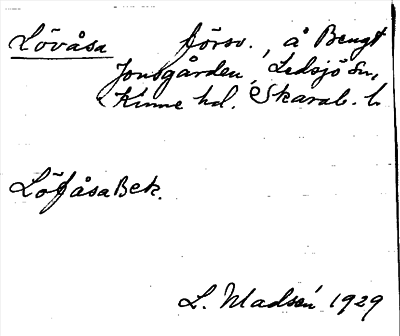 Lövåsa försv., å Bengt
Jonsgården, Ledsjö sn,
Kinne hd. Skarab. l.
Löfåsa Bek.
L. Madsén 1929